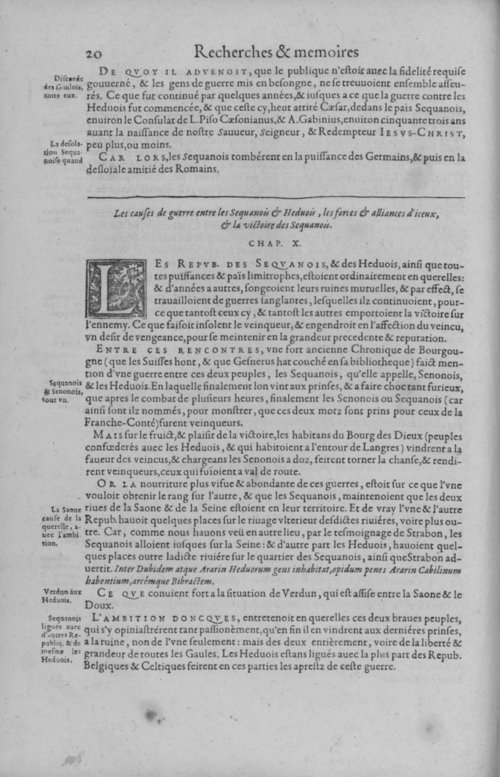 20 Recherches & memoires
Discorde
des Gaulois,
entre eux.
DE QVOY IL ADVENOIT, que le publique n'estoit auec la fidelité requise
gouuerné, & les gens de guerre mis en besongne, ne se treuuoient ensemble asseu-
rés. Ce que fut continué par quelques années, & iusques a ce que la guerre contre les
Heduois fut commencée, & que ceste cy, heut attiré Cæsar, dedans le païs Sequanois,
enuiron le Consulat de L. Piso Cæsonianus, & A. Gabinius, enuiron cinquante trois ans
auant la naissance de nostre Sauueur, Seigneur, & Redempteur IESVS-CHRIST,
peu plus, ou moins.
La desola-
tion Sequa-
noise quand
CAR LORS, les Sequanois tombérent en la puissance des Germains, & puis en la
desloiale amitié des Romains.
Les causes de guerre entre les Sequanois & Heduois, les forces & alliances d'iceux,
& la victoire des Sequanois.
CHAP. X.
LES REPVB. DES SEQVANOIS, & des Heduois, ainsi que tou-
tes puissances & païs limitrophes, estoient ordinairement en querelles:
& d'années a autres, songeoient leurs ruines mutuelles, & par effect, se
trauailloient de guerres sanglantes, lesquelles ilz continuoient, pour-
ce que tantost ceux cy, & tantost les autres emportoient la victoire sur
l'ennemy. Ce que faisoit insolent le veinqueur, & engendroit en l'affection du veincu,
vn desir de vengeance, pour se meintenir en la grandeur precedente & reputation.
ENTRE CES RENCONTRES, vne fort ancienne Chronique de Bourgou-
gne (que les Suisses hont, & que Gesnerus hat couché en sa bibliotheque) faict men-
tion d'vne guerre entre ces deux peuples, les Sequanois, qu'elle appelle, Senonois,
& les Heduois. En laquelle finalement lon vint aux prinses, & a faire choc tant furieux,
que apres le combat de plusieurs heures, finalement les Senonois ou Sequanois (car
ainsi sont ilz nommés, pour monstrer, que ces deux motz sont prins pour ceux de la
Franche-Conté) furent veinqueurs.
Sequanois
& Senonois,
tout vn.
MAIS sur le fruict, & plaisir de la victoire, les habitans du Bourg des Dieux (peuples
confœderés auec les Heduois, & qui habitoient a l'entour de Langres) vindrent a la
faueur des veincus, & chargeans les Senonois a doz, feirent torner la chanse, & rendi-
rent veinqueurs, ceux qui fuioient a val de route.
OR LA nourriture plus vifue & abondante de ces guerres, estoit sur ce que l'vne
vouloit obtenir le rang sur l'autre, & que les Sequanois, maintenoient que les deux
riues de la Saone & de la Seine estoient en leur territoire. Et de vray l'vne & l'autre
Repub. hauoit quelques places sur le riuage vlterieur desdictes riuiéres, voire plus ou-
tre. Car, comme nous hauons veü en autre lieu, par le tesmoignage de Strabon, les
Sequanois alloient iusques sur la Seine: & d'autre part les Heduois, hauoient quel-
ques places outre ladicte riuiére sur le quartier des Sequanois, ainsi que Strabon ad-
uertit. Inter Dubidem atque Ararin Heduorum gens inhabitat, opidum penes Ararin Cabilinum
habentium, arcémque Bibractem.
La Saone
cause de la
querelle, a-
uec l'ambi-
tion.
Verdun aux
Heduois.
CE QVE conuient fort a la situation de Verdun, qui est assise entre la Saone & le
Doux.
Sequanois
ligués auec
d'autres Re-
publiq. & de
mesme les
Heduois.
L'AMBITION DONCQVES, entretenoit en querelles ces deux braues peuples,
qui s'y opiniastrérent tant passionément, qu'en fin il en vindrent aux derniéres prinses,
a la ruine, non de l'vne seulement: mais des deux entiérement, voire de la liberté &
grandeur de toutes les Gaules. Les Heduois estans ligués auec la plus part des Repub.
Belgiques & Celtiques feirent en ces parties les aprestz de ceste guerre.